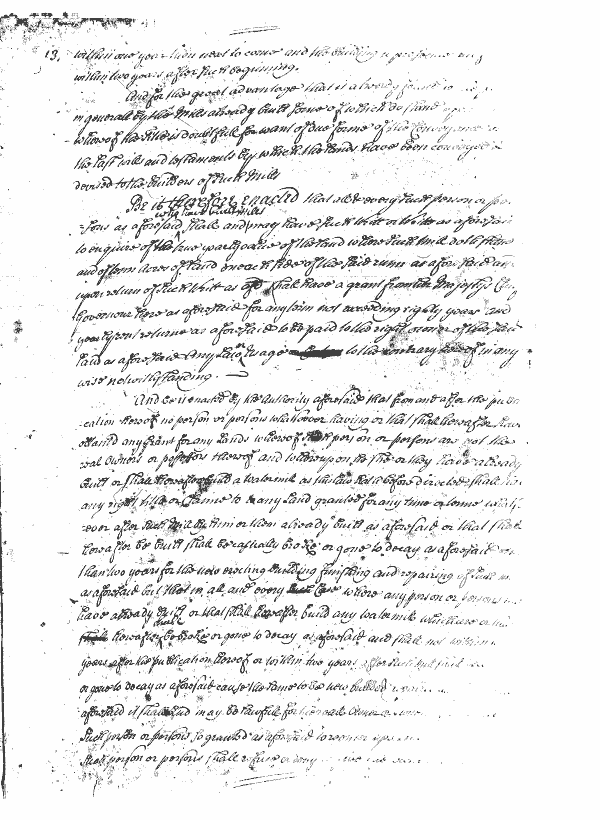 13,
within one year then next to come and the building
within two years after such beginning.
And for the great advantage that is already found
in generall by the Mills already built some of which do stand
whereof the title is doubtfull for want of due forme of
the last wills and testaments by which the lands have been conveyed
devised to the builders of such Mills
Be it therefore enacted that all & every such person or
who have built Mills
sons as aforesaid shall and may have such Writ or Writs as aforesaid
to enquire of the true yearly value of the land where such mill doth stand
and of tenn acres of land on each side of the said runn as aforesaid
upon return of such Writ as shall have a grant from the
Governour here as aforesaid for any term not exceeding eighty years and
yearly rent returne as aforesaid to be paid to the right owner of the said
land as aforesaid Any Law or usage to the contrary hereof in any
wise notwithstanding
And be it enacted by the Authority aforesaid that from and after the
cation hereof no person or persons whatsoever having or that shall hereafter have
obtaind any grant for any Lands whereof such person or persons are not the
reall Owners or possessors thereof and whereupon he she or they have already
built or shall hereafter build a Watermill as this law hath before directed shall
any right title or claime to any Land granted for any time or terme
ever after such Mill by him or them already built as aforesaid or that shall
hereafter be built shall be casually broke or gone to decay as aforesaid
than two years for the new erecting building finishing and repairing of such
as aforesaid but that in all and every where any person or persons
have already built or that shall hereafter build any watermill which are
shall
hereafter be broke or gone to decay as aforesaid and shall not within
years after the publication hereof or within two years after
or gone to decay as aforesaid cause the same to be new builded
aforesaid it shall and may be lawfull for
such person or persons so granted as aforesaid
such person or persons shall refuse or deny